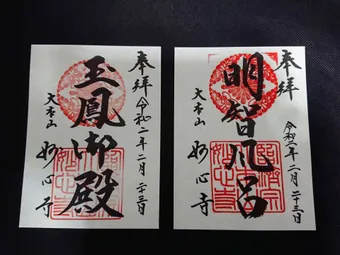 奉拝
令和二年二月二十三日
玉鳳御殿
大本山
妙心寺
奉拝
令和二年二月二十三日
明智風呂
大本山
妙心寺